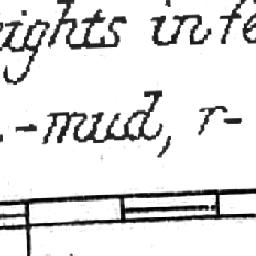 eights in fe
-mud, r-